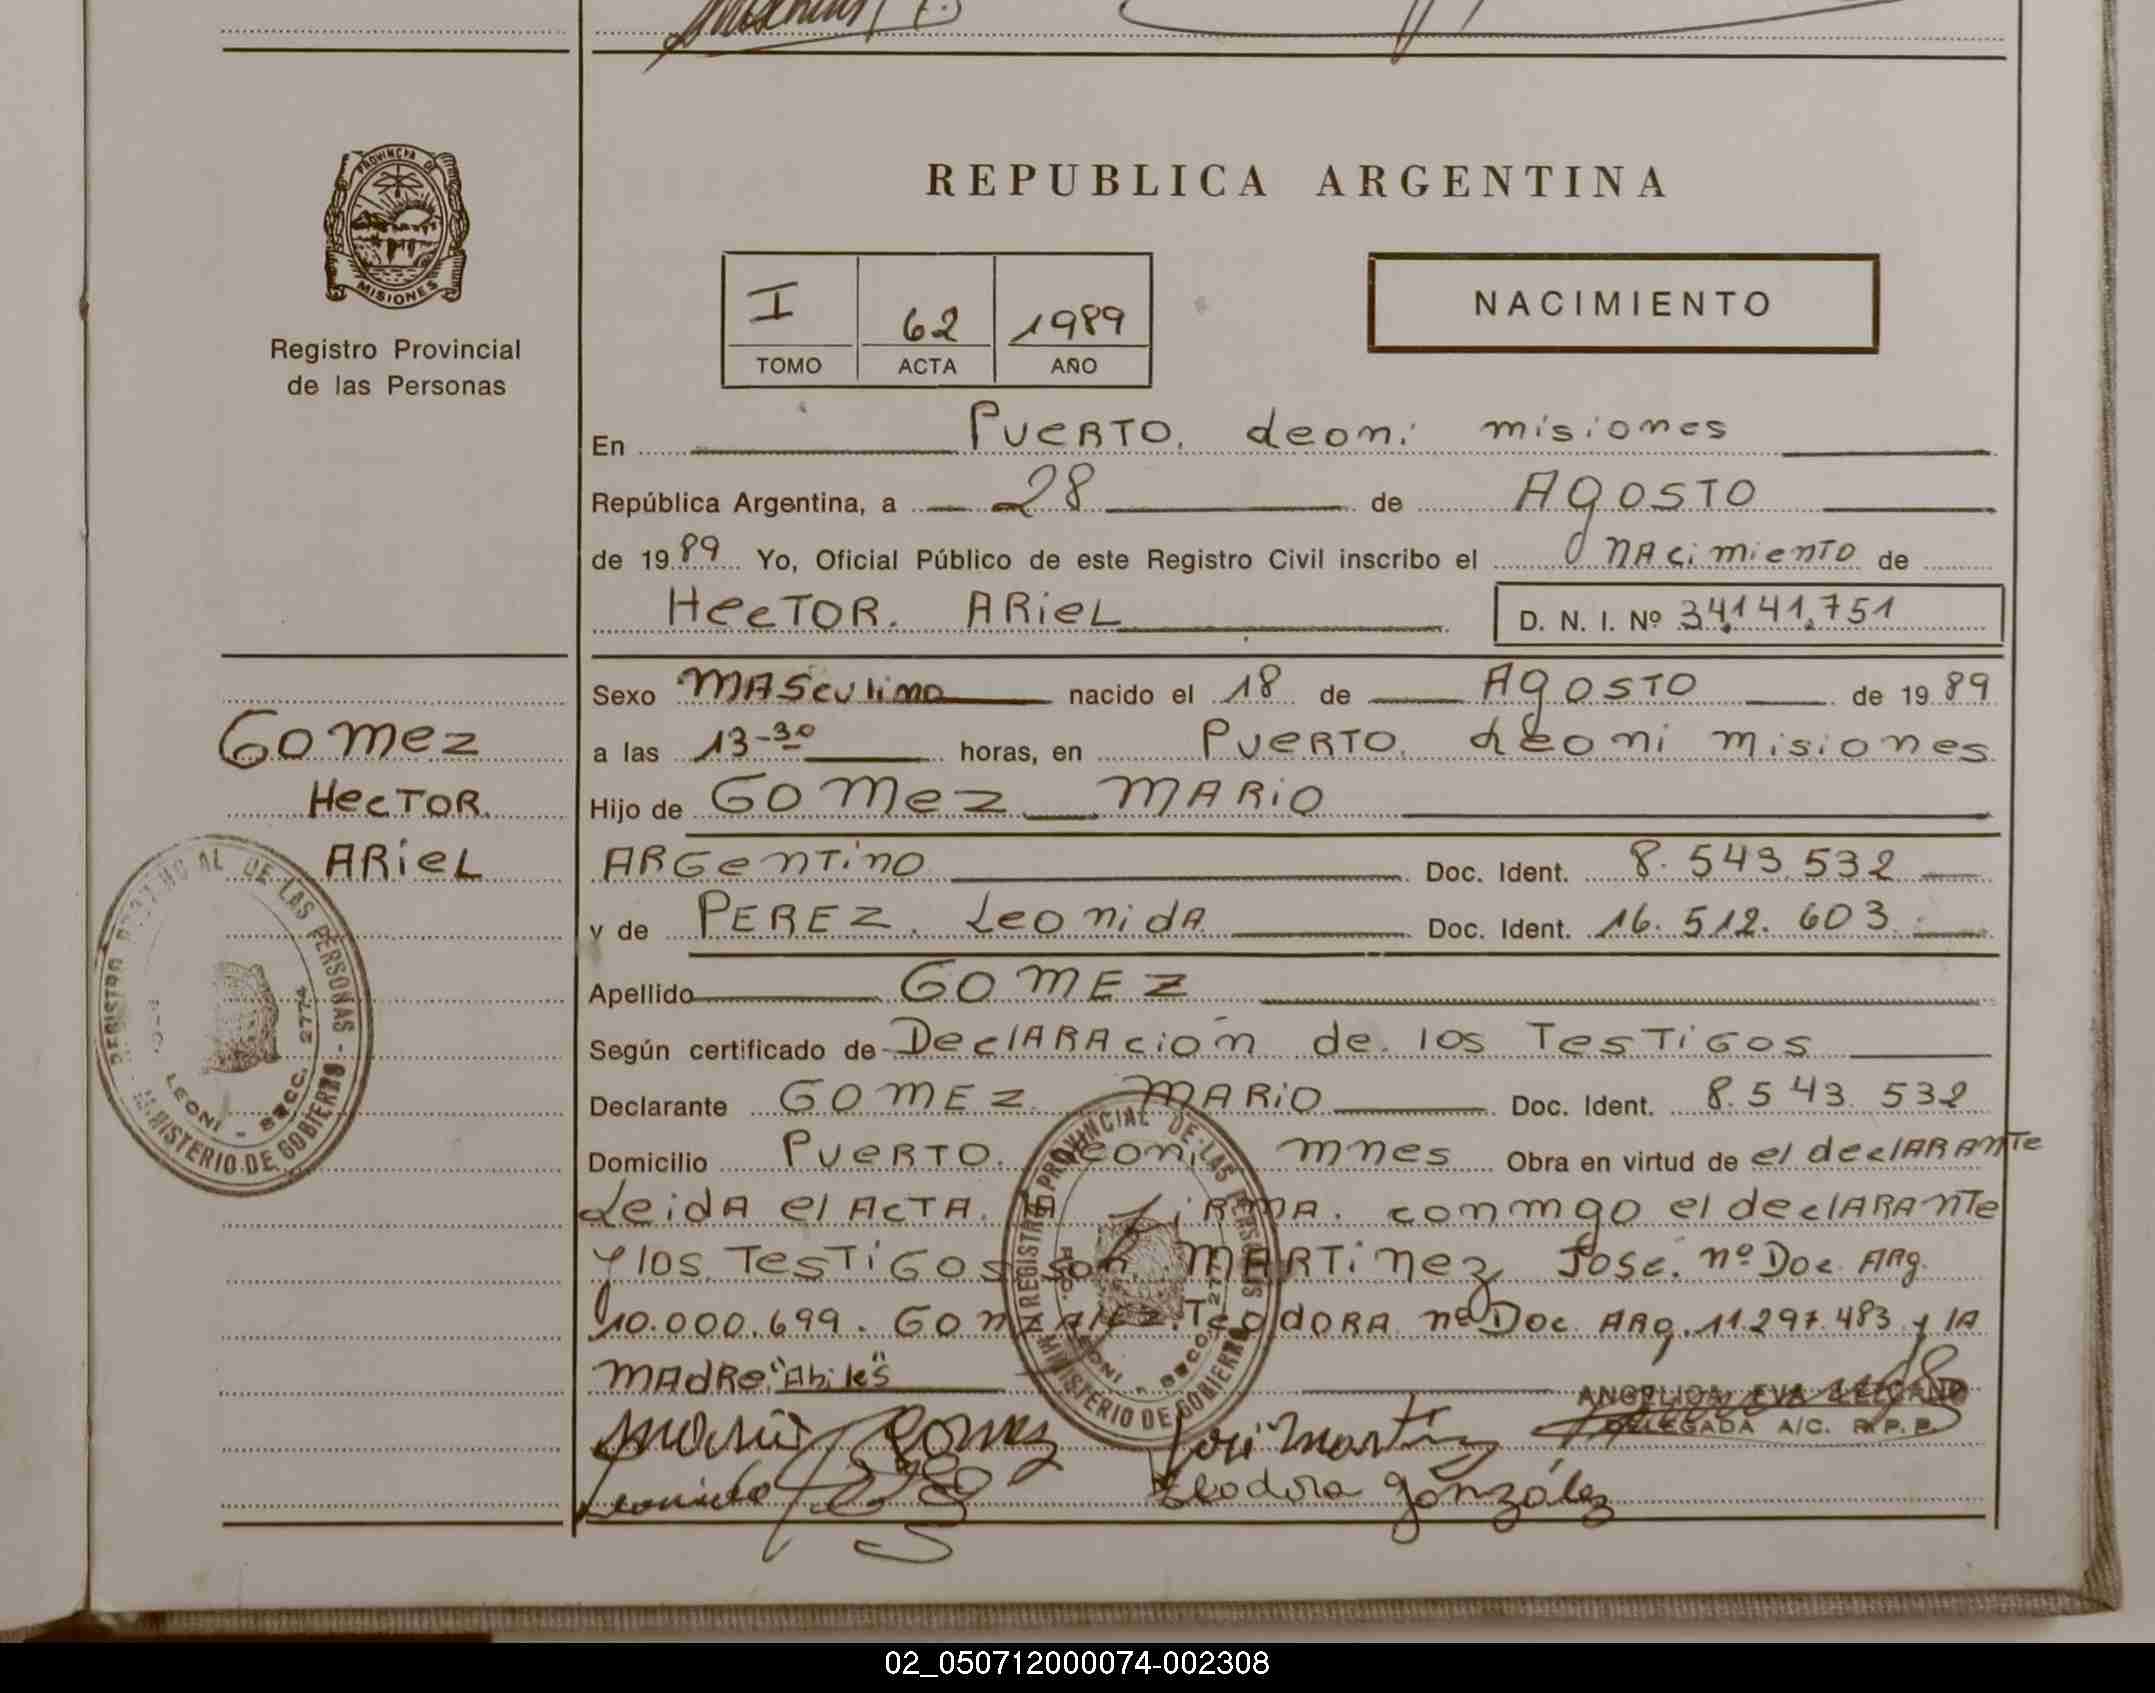 REPUBLICA ARGENTINA
PROVINCIA DE
MISIONES
Registro Provincial
de las Personas
I 62 1989
TOMO ACTA AÑO
NACIMIENTO
En PUERTO. Leoni misiones
República Argentina, a 28 de AgOSTO
de 1989 Yo, Oficial Público de este Registro Civil inscribo el NAcimienTO de
HecTOR. ARieL D. N. I. Nº 34.141.751
Sexo MAScuLino nacido el 18 de AgOSTO de 1989
a las 13-30 horas, en PueRTO. Leoni misiones
Gomez
HecTOR.
ARieL
Hijo de GOMez MARiO
ARGenTino Doc. Ident. 8.543.532
y de PEREZ. Leonida Doc. Ident. 16.512.603
Apellido GOMEZ
Según certificado de DeclARAción de los TesTiGos
Declarante GOMEZ MARiO Doc. Ident. 8.543.532
Domicilio PueRTO. Leoni mnes Obra en virtud de el declARAnTe
Leida el AcTA. LA FiRMA. conmgo el declARAnTe
y los TesTiGos son MARTinez Jose. nº Doc ARg.
10.000.699. GonzALez. TeodORA nº Doc ARg. 11.297.483 y lA
MAdRe."Abiles"
Mario Gomez José Martinez
ANGELICA EVA LEZCANO
DELEGADA A/C. R.P.P.
Leonida Teodora González
REGISTRO PROVINCIAL DE LAS PERSONAS - MINISTERIO DE GOBIERNO
LEONI - SECC. 2774
REGISTRO PROVINCIAL DE LAS PERSONAS
MINISTERIO DE GOBIERNO
LEONI - SECC.
02_050712000074-002308